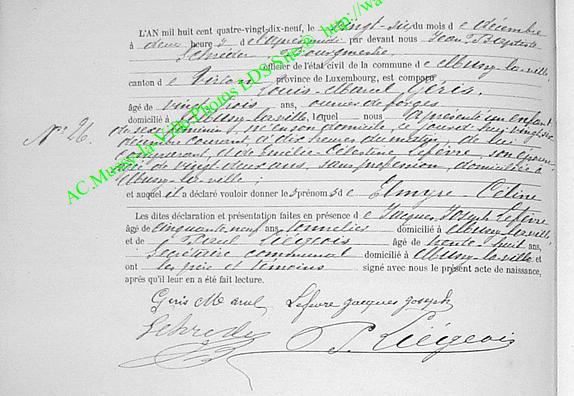 L'AN mil huit cent quatre-vingt-dix-neuf, le vingt-six du mois de décembre
à deux heures de l'après-midi par devant nous Jean Baptiste
Schréder Bourgmestre
officier de l'état civil de la commune de Mussy-la-ville,
canton de Virton province de Luxembourg, est comparu
Louis-Marcel Géris,
âgé de vingt-trois ans, ouvrier de forges
domicilié à Mussy-la-ville, lequel nous a présenté un enfant
N° 26. du sexe féminin, né en son domicile, ce jourd'huy vingt-six
décembre courant, à dix heures du matin, de lui
comparant, et de Emilie-Célestine Lefèvre, son épouse
de vingt-deux ans, sans profession, domiciliée à
Mussy-la-ville;
et auquel il a déclaré vouloir donner les prénoms de Elmyre Céline
Les dites déclaration et présentation faites en présence de Jacques Joseph Lefèvre
âgé de cinquante-neuf ans tonnelier domicilié à Mussy-la-ville
et de Paul Liégeois âgé de trente-huit ans,
secrétaire communal domicilié à Mussy-la-ville et
ont les père et témoins signé avec nous le présent acte de naissance,
après qu'il leur en a été fait lecture.
Géris Marcel Lefevre jacques joseph
Schreder P. Liégeois
AC.Mussy-la-Ville-Photos LDS-Site@ http://wa